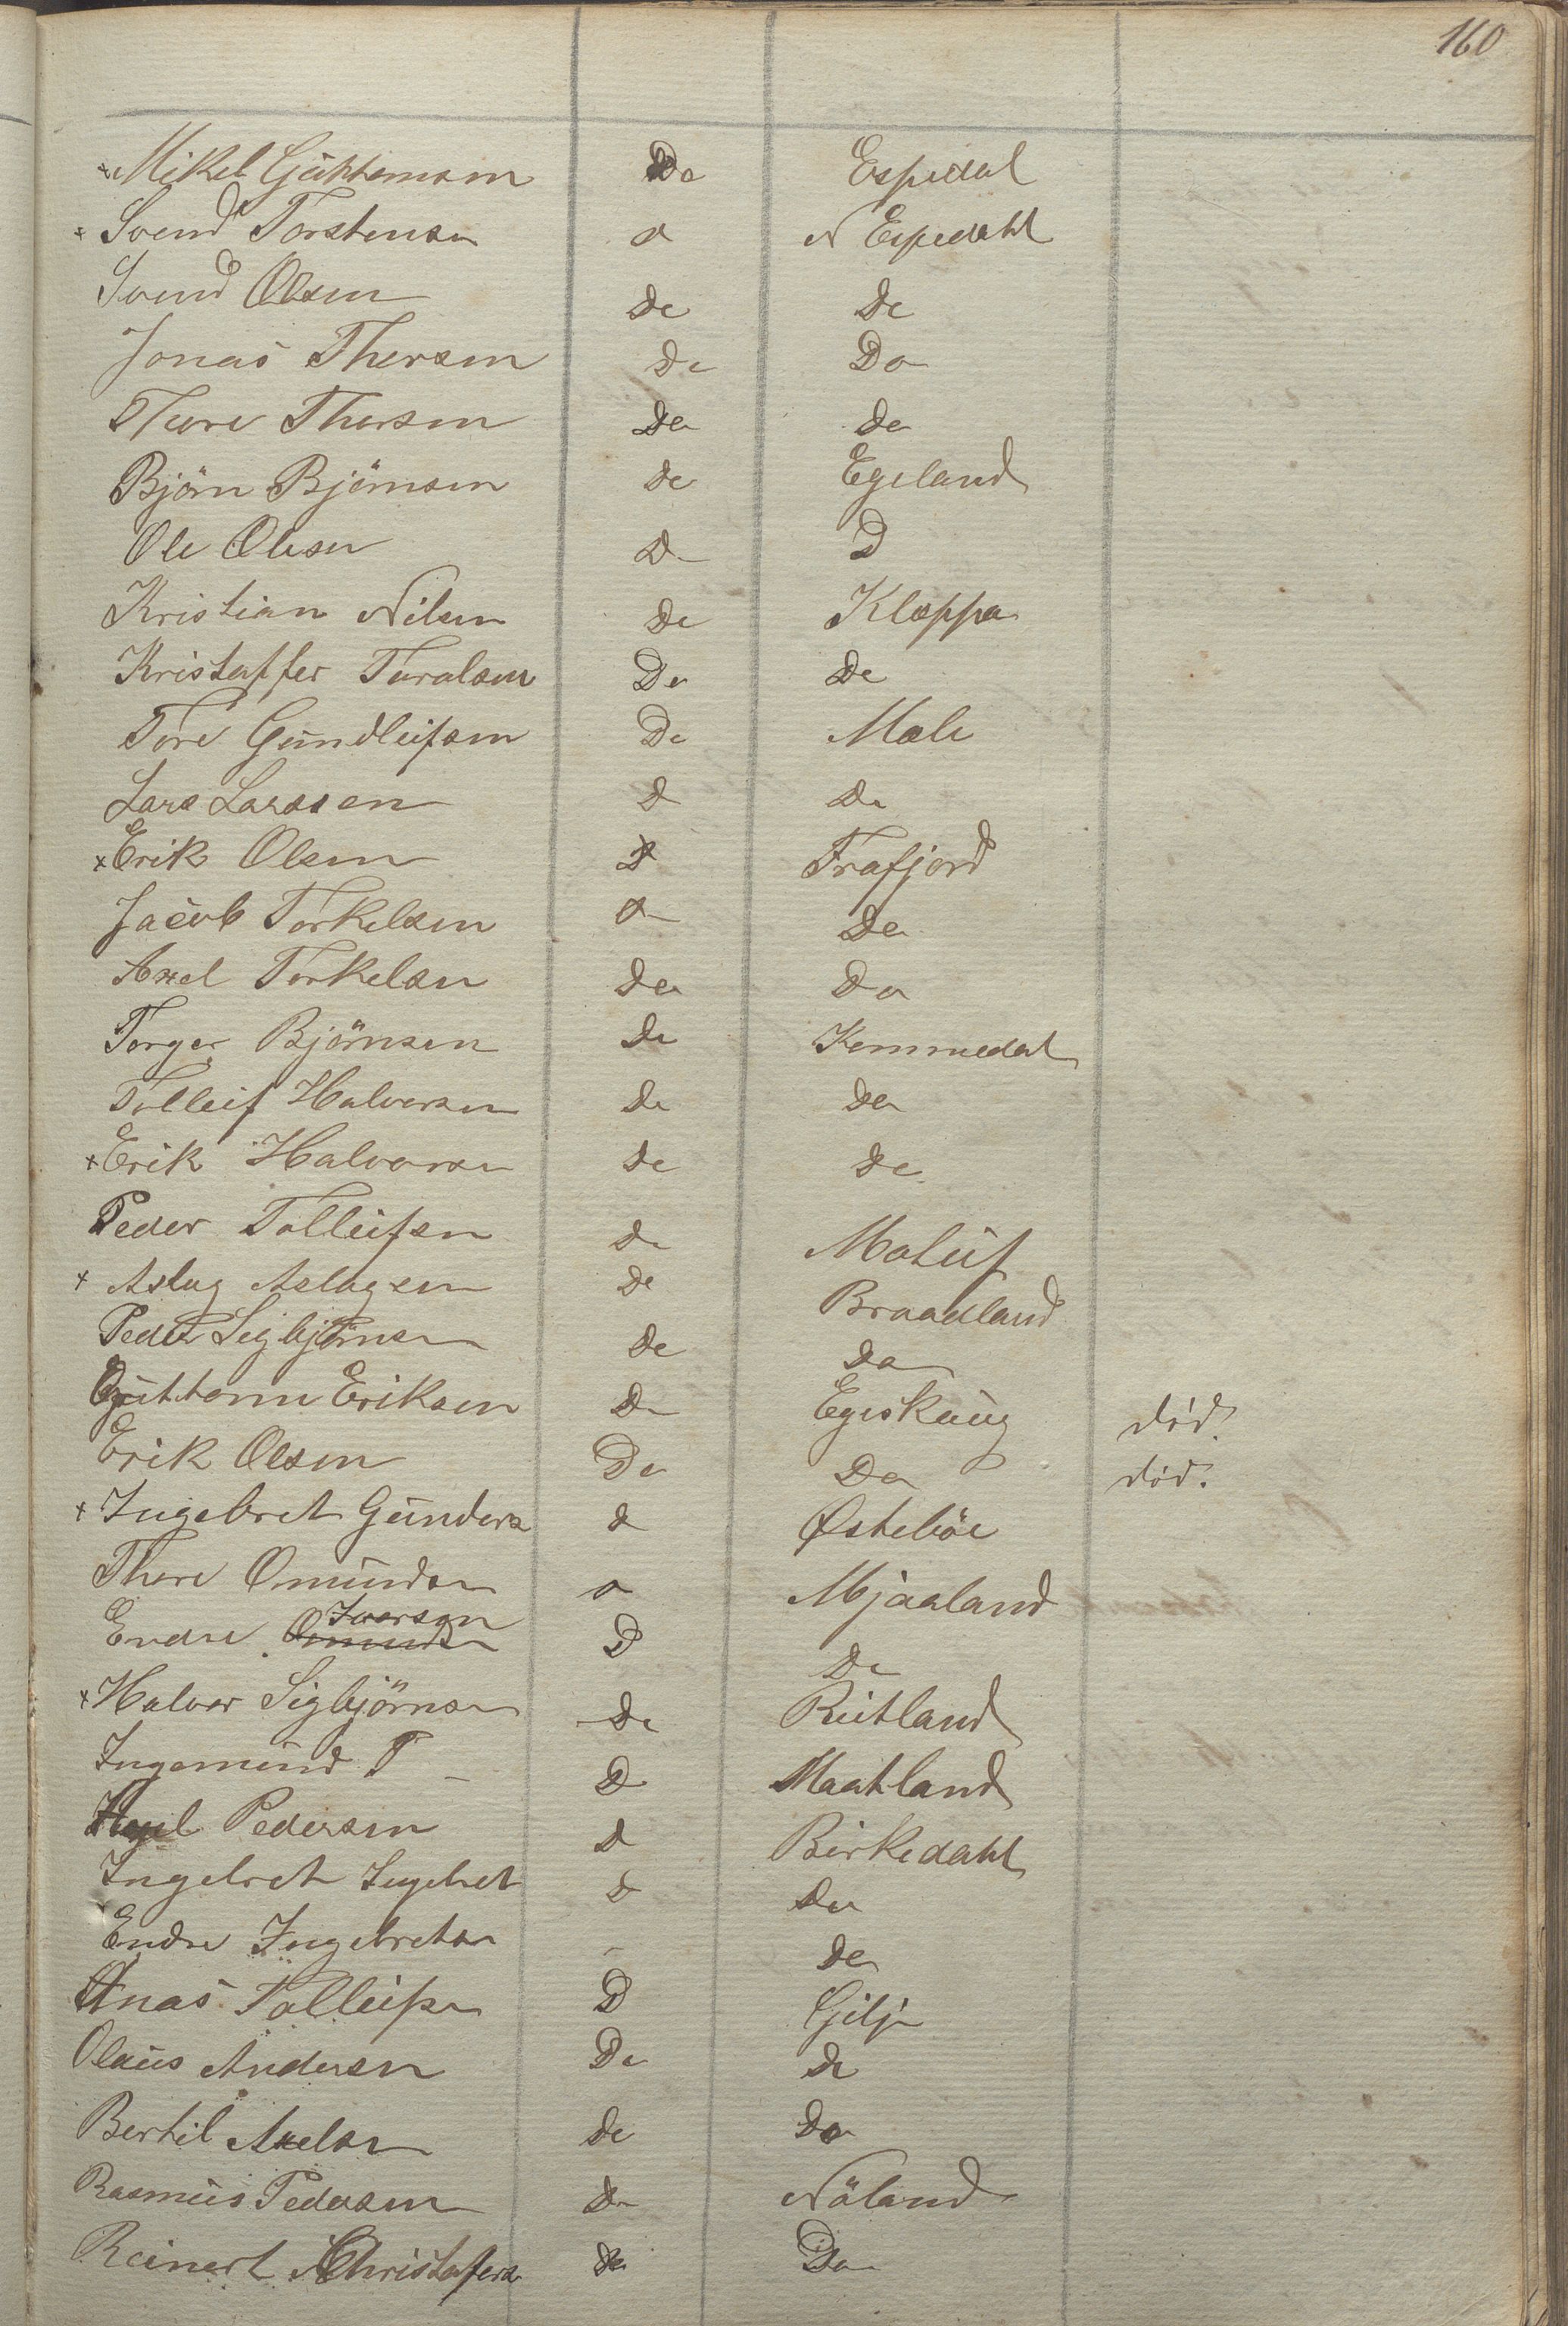 160
× Mikel Guttomsen Do Espedal
× Svend Torstensen D N Espedahl
Svend Olsen Do Do
Jonas Thorsen Do Do
Thore Thorsen Do Do
Björn Björnsen Do Egeland
Ole Olesen D D
Kristian Nilsen Do Kloppa
Kristaffer Toralsen Do Do
Tore Gundleifsen Do Mæle
Lars Larssen D Do
× Erik Olsen D Frafjord
Jacob Torkelsen D Do
Axel Torkelsen Do Do
Torger Björnsen Do Kommedal
Tolleif Halvorsen Do Do
× Erik Halvorsen Do Do
Peder Tolleifsen Do Molaug
× Aslag Aslagsen Do Braadland
Peder Sigbjörnsen Do Do
Guttorm Eriksen Do Egeskaug död.
Erik Olsen Do Do död.
× Ingebret Gunders D Østeböe
Thore Omundsen D Mjaaland
Iversen
Endre Omundsen D Do
× Halvor Sigbjörnsen Do Ritland
Ingemund T D Maatland
Pedersen D Birkedahl
Ingebret Ingebret D Do
Endre Ingebretsen - Do
Anas Tolleifsen D Gilje
Olaus Andersen Do Do
Bertil Axelsen Do Do
Rasmus Pedersen Do Nöland
Reinert Christofers Do Do